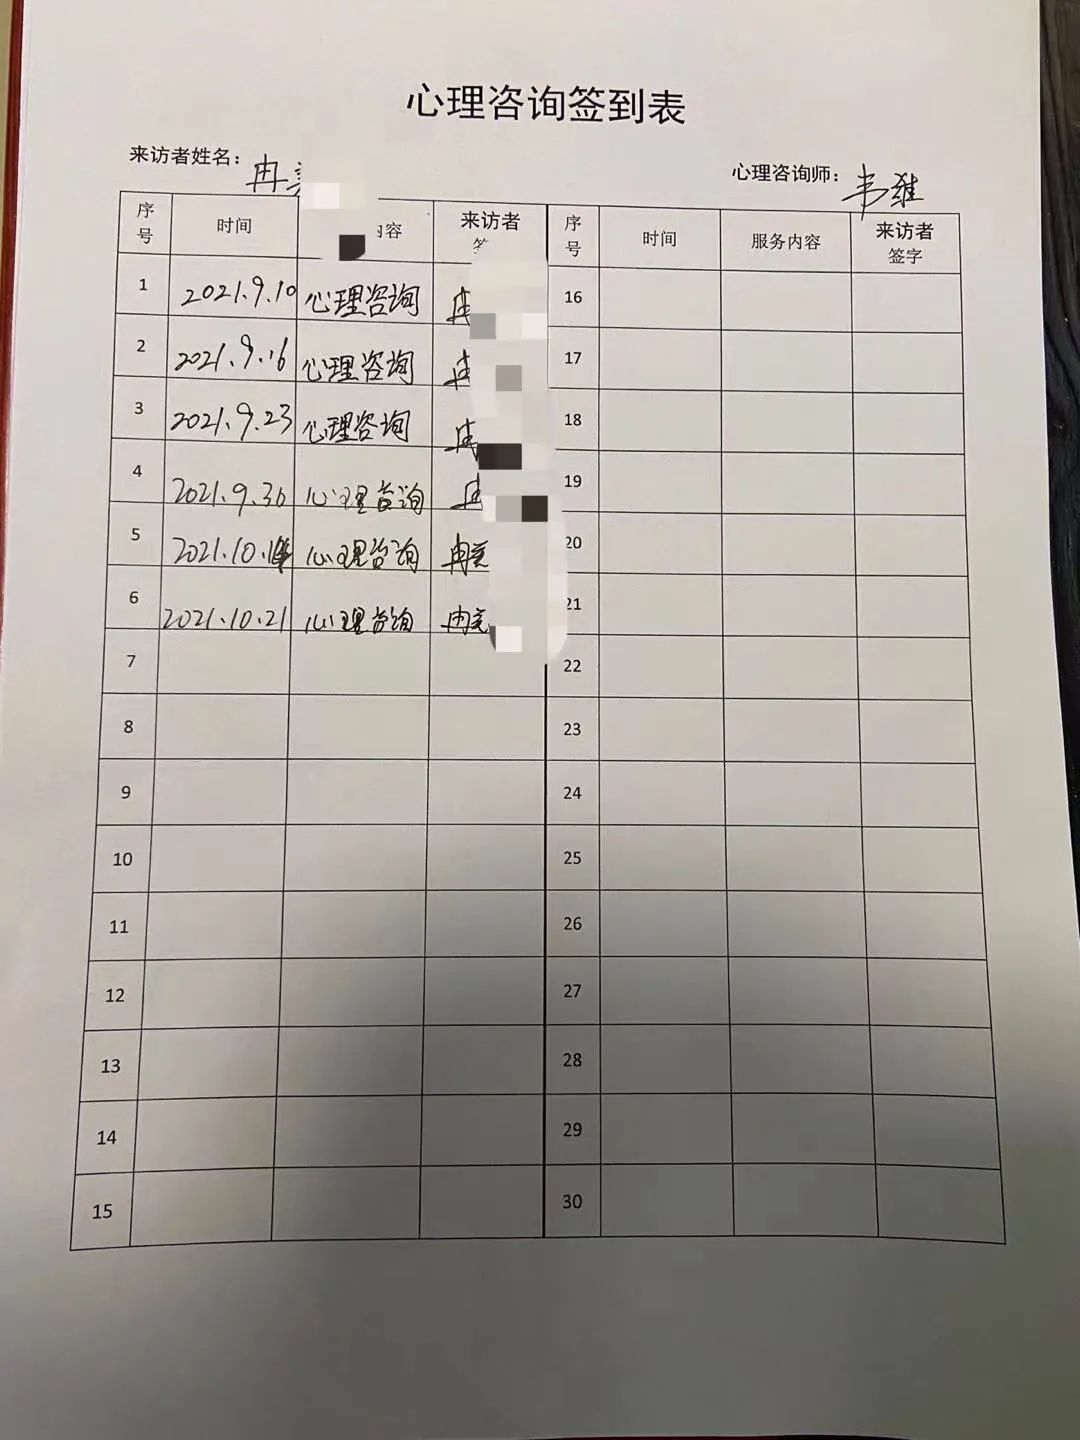 心理咨询签到表
来访者姓名：冉
心理咨询师：韦维
序号 时间 内容 来访者 序号 时间 服务内容 来访者签字
1 2021.9.10 心理咨询 冉 16
2 2021.9.16 心理咨询 冉 17
3 2021.9.23 心理咨询 冉 18
4 2021.9.30 心理咨询 冉 19
5 2021.10.14 心理咨询 冉 20
6 2021.10.21 心理咨询 冉 21
7 22
8 23
9 24
10 25
11 26
12 27
13 28
14 29
15 30